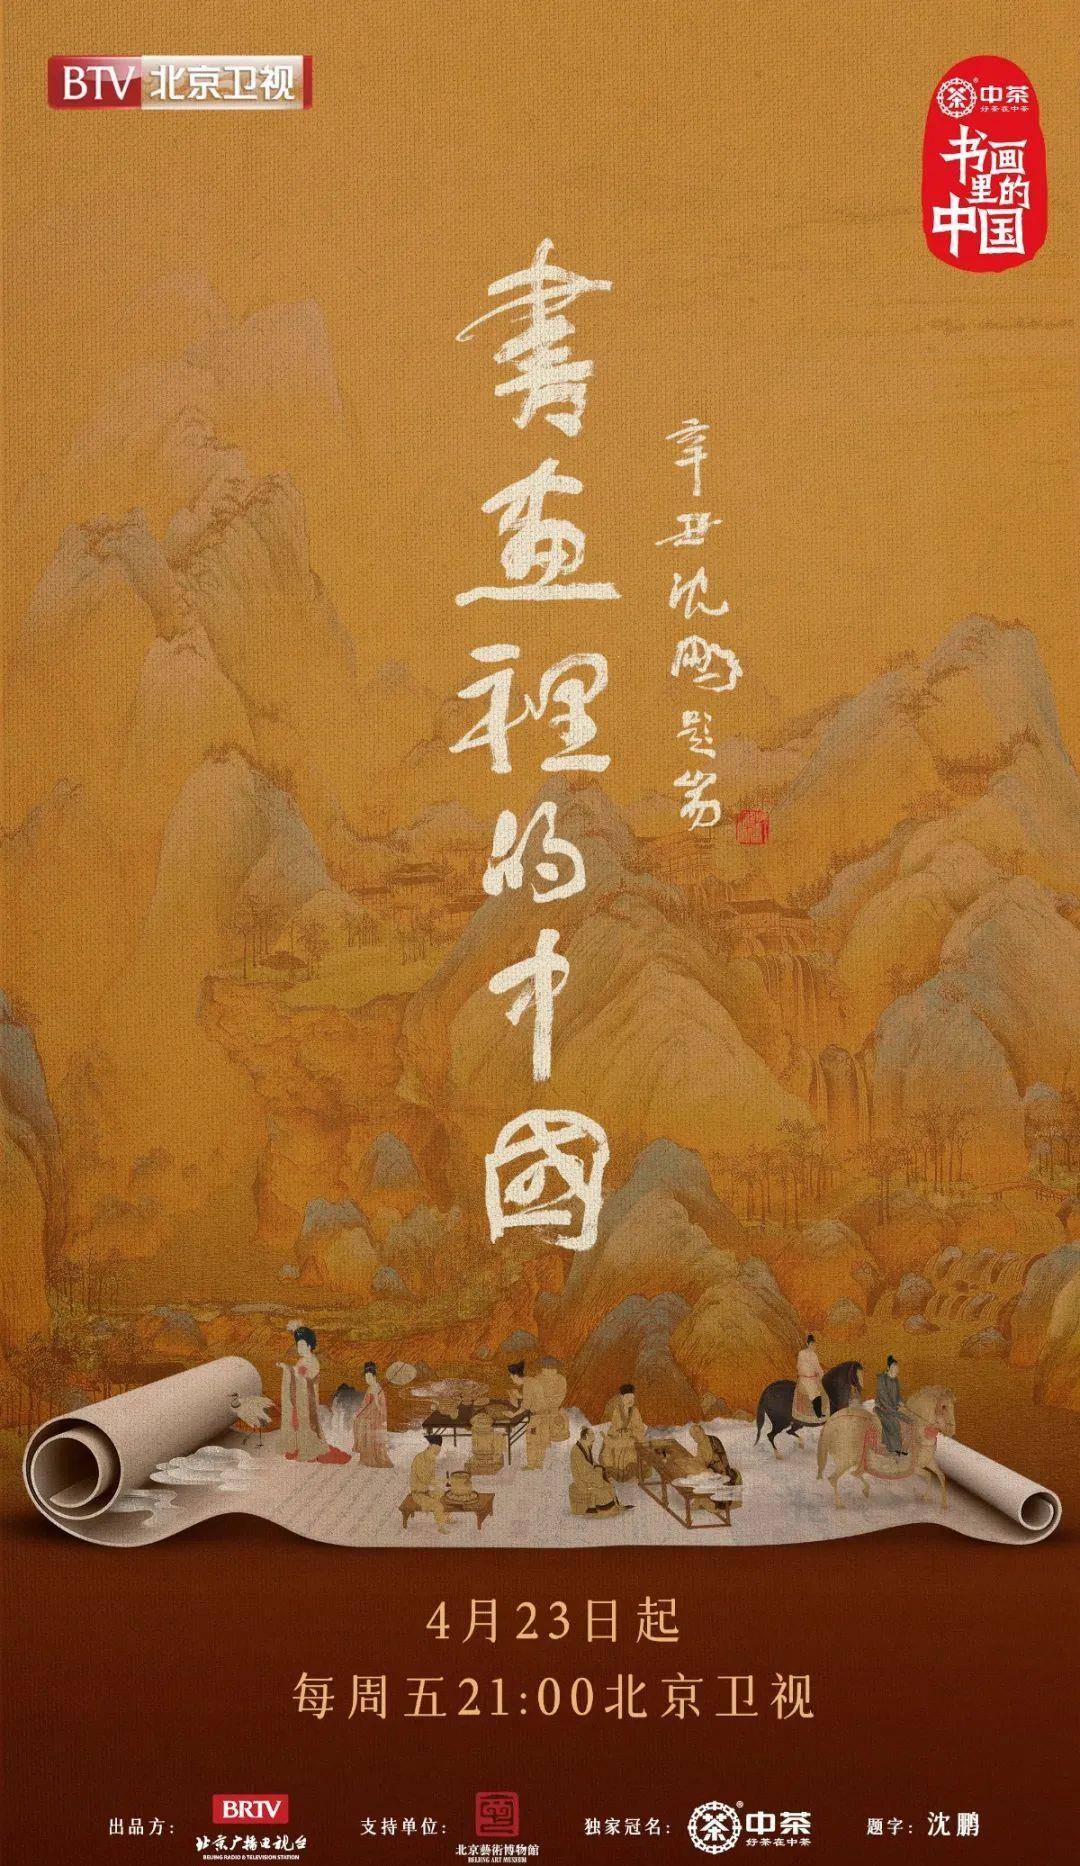 BTV 北京卫视
中茶
好茶在中茶
书画里的中国
書畫裡的中國
辛丑沈鹏题笺
4月23日起
每周五21:00北京卫视
出品方：
BRTV
北京广播电视台
BEIJING RADIO & TELEVISION STATION
支持单位：
北京藝術博物館
BEIJING ART MUSEUM
独家冠名：
中茶
好茶在中茶
题字：沈鹏